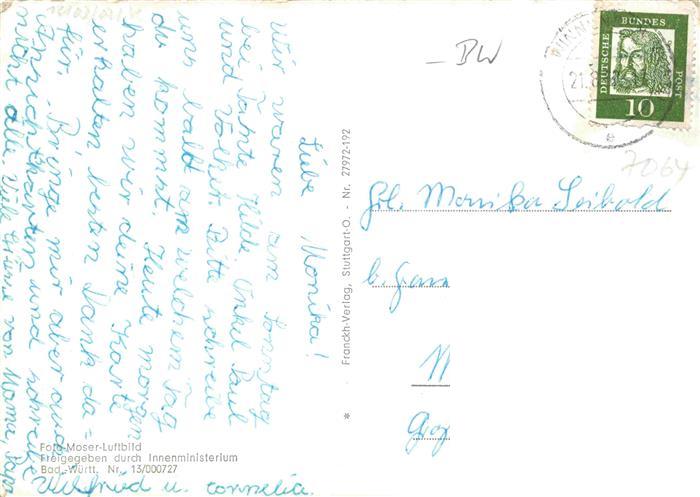 Liebe Monika!
Wir waren am Sonntag
bei Tante Hilde, Onkel Paul
und Volker. Bitte schreibe
uns bald am welchem Tag
du kommst. Heute morgen
haben wir deine Karte
erhalten besten Dank da=
für. Bringe mir aber auch
Ansichtskarten und schreibe
nicht alle. Viele Grüsse von Mama, Papa
Wilfried u. Cornelia.
Foto-Moser-Luftbild
Freigegeben durch Innenministerium
Bad.-Württ. Nr. 13/000727
Franckh-Verlag, Stuttgart-O. - Nr. 27972-192
*
BW
DEUTSCHE BUNDES POST
10
21.8
e
7064
Frl. Monika Seibold
b. Fam